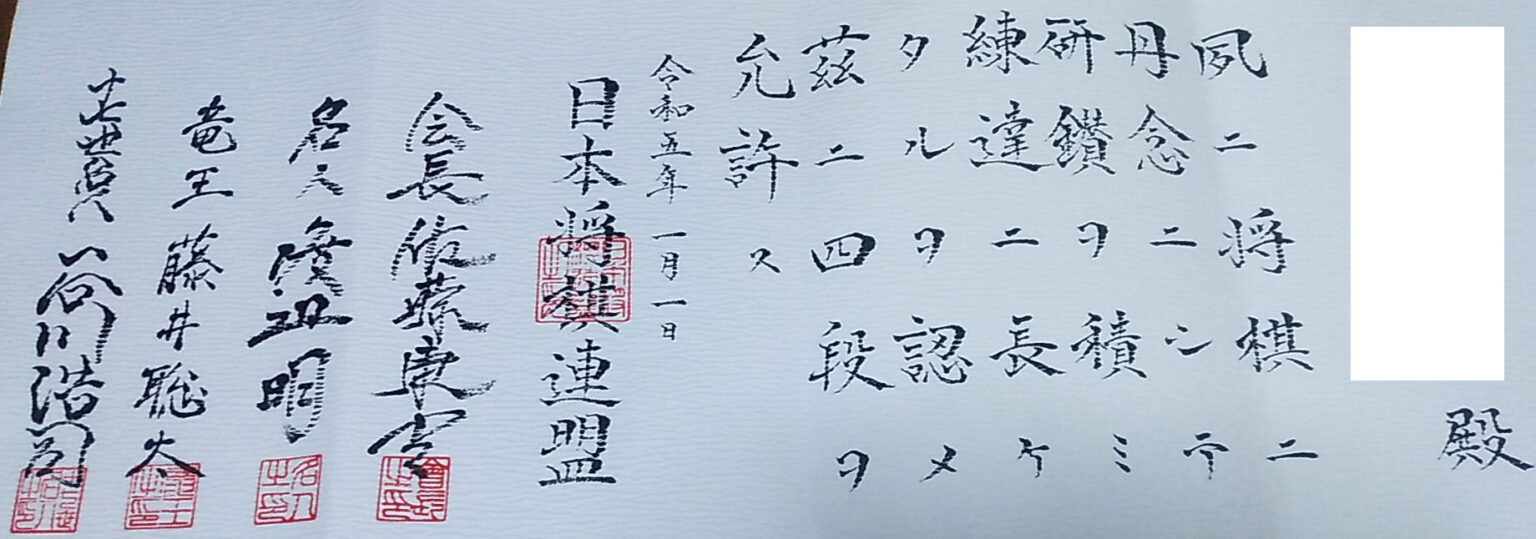 殿
夙ニ将棋ニ
丹念ニシテ
研鑚ヲ積ミ
練達ニ長ケ
タルヲ認メ
茲ニ四段ヲ
允許ス
令和五年一月一日
日本将棋連盟
会長 佐藤康光
名人 渡辺明
竜王 藤井聡太
十七世名人 谷川浩司